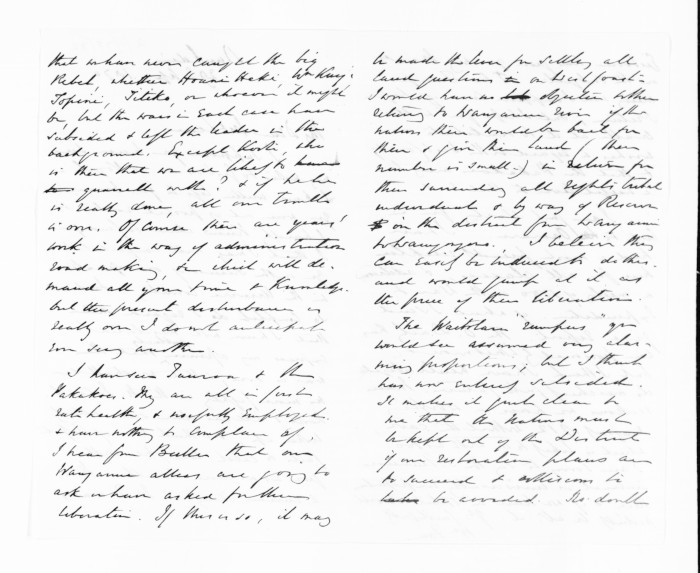 that we have never caught the big
Rebel, whether Honi Heki, Wm King,
Topine, Titoko, or whoever it might
be, but the wars in each case have
subsided & left the leader in the
background. Except Kooti, who
is there that we are likely to
quarrell with? & if he be
is really done, all our trouble
is over. Of course there are years'
work in the way of administration
road making, &c which will de-
mand all your time & knowledge.
but the present disturbance is
really over I do not anticipate
ever seeing another.
I have seen Tauroa & the
Pakakoes. They are all in first
rate health, & usefully employed.
& have nothing to complain of.
I hear from Buller that our
Wanganui allies are going to
ask or have asked for their
liberation. If this is so, it may
be made the lever for settling all
land questions on West Coast.
I would have no objection to their
returning to Wanganui River if the
natives there would be bail for
them & give them land (their
number is small.) in return for
their surrendering all rights tribal
individual & by way of Reserve
in the district from Wanganui
to Waingongoro. I believe they
can easily be induced to do this.
and would jump at it as
the price of their liberation.
The Waitotara "rumpus" you
would see assumed very alar-
ming proportions; but I think
has now entirely subsided.
It makes it quite clear to
me that the Natives must
be kept out of the District
if our restoration plans are
to succeed & collisions to
be avoided. No doubt